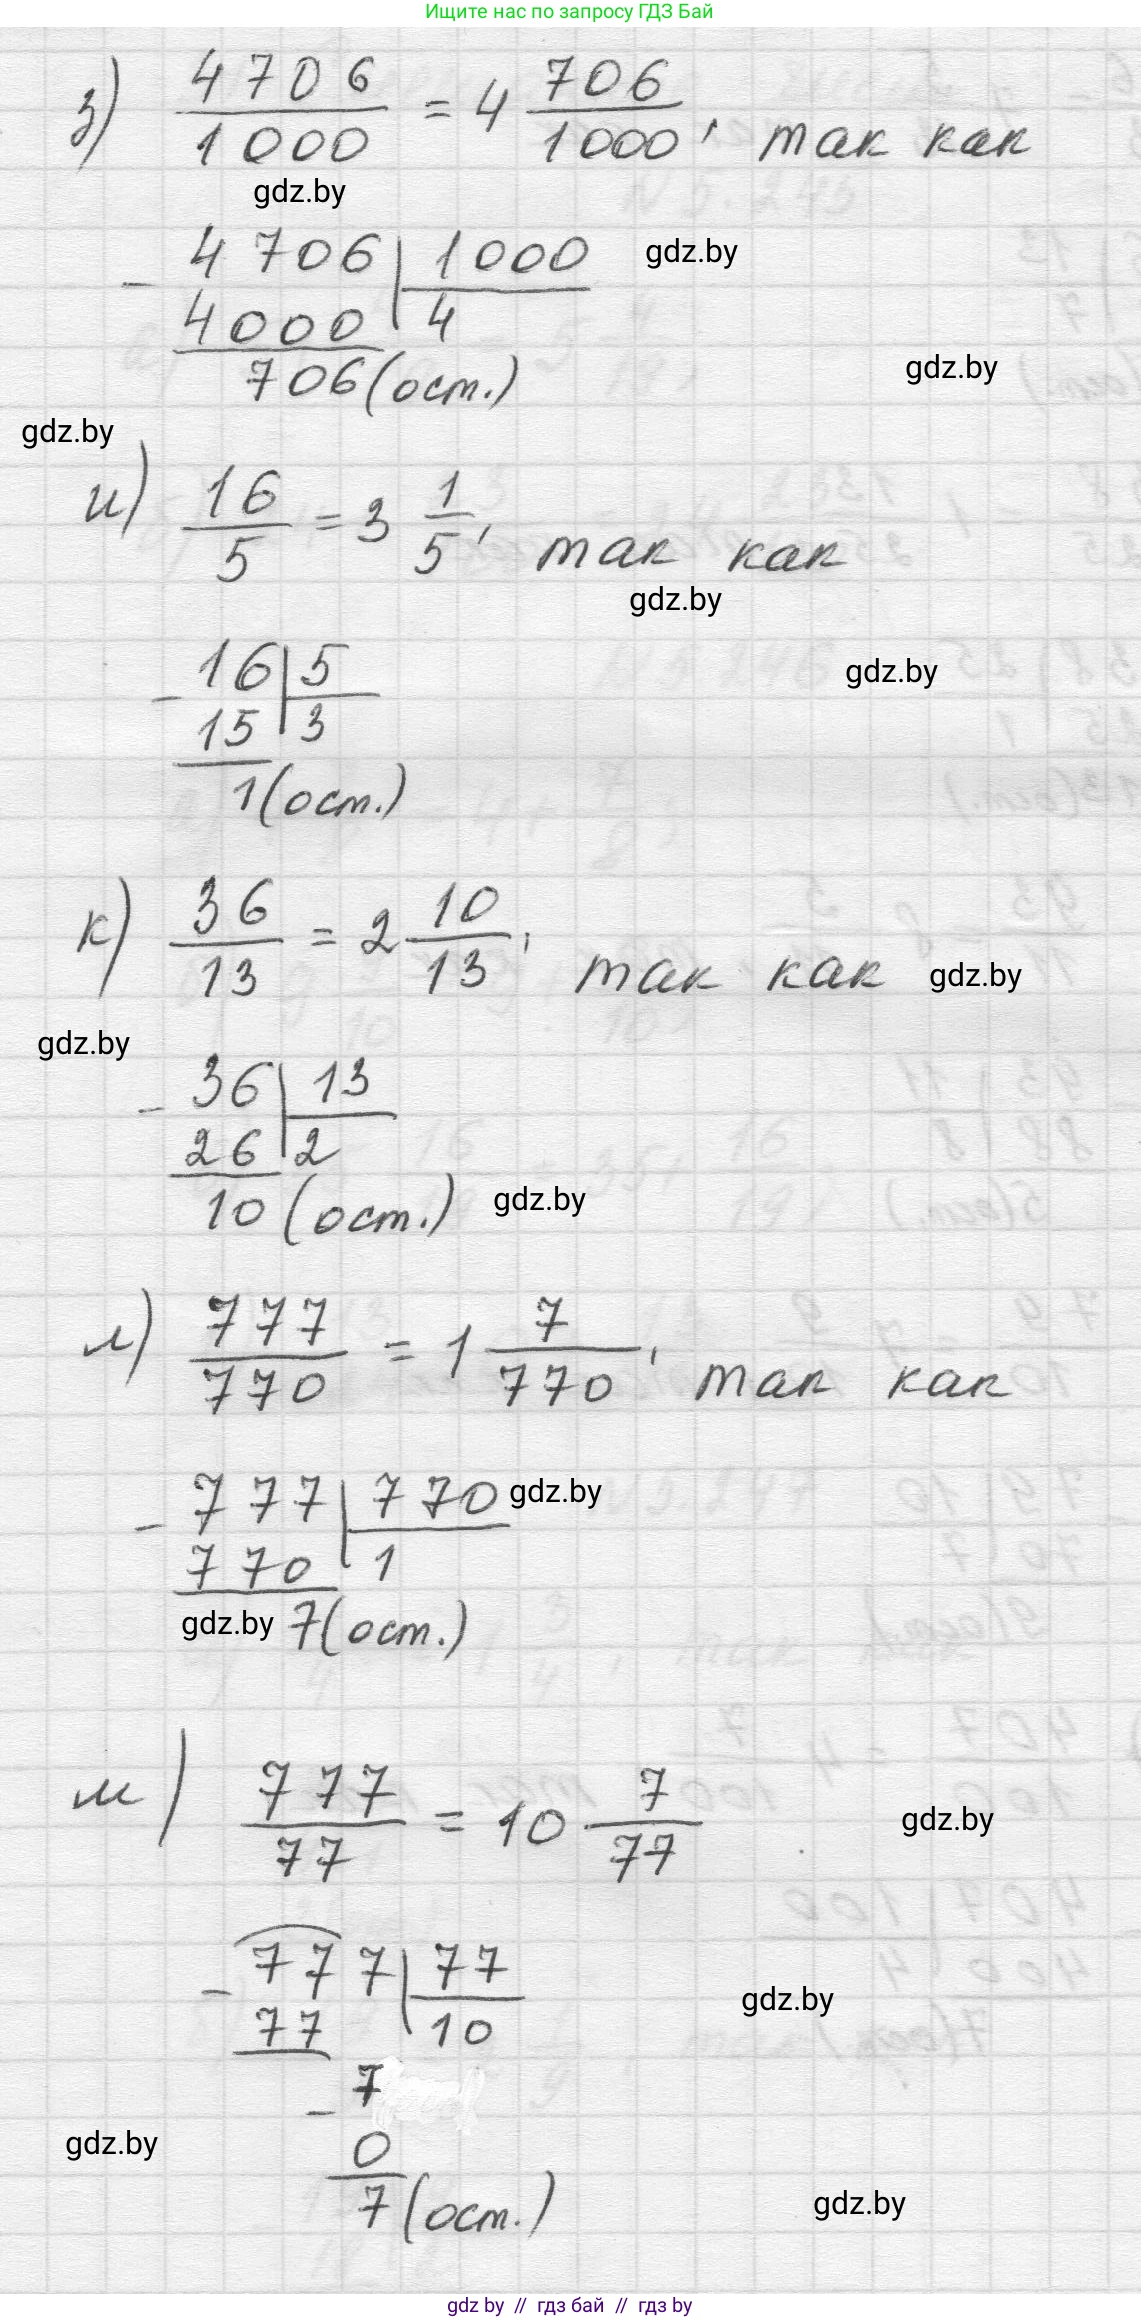 Ищите нас по запросу ГДЗ Бай
з) 4706/1000 = 4 706/1000, так как
gdz.by
- 4706 | 1000
gdz.by
4000 | 4
706 (ост.)
gdz.by
gdz.by
и) 16/5 = 3 1/5, так как
gdz.by
- 16 | 5
gdz.by
15 | 3
1 (ост.)
к) 36/13 = 2 10/13, так как
gdz.by
gdz.by
- 36 | 13
26 | 2
10 (ост.)
gdz.by
л) 777/770 = 1 7/770, так как
- 777 | 770
gdz.by
770 | 1
gdz.by
7 (ост.)
м) 777/77 = 10 7/77
gdz.by
- 777 | 77
77 | 10
gdz.by
- 7
gdz.by
0
7 (ост.)
gdz.by
gdz by // гдз бай // gdz by